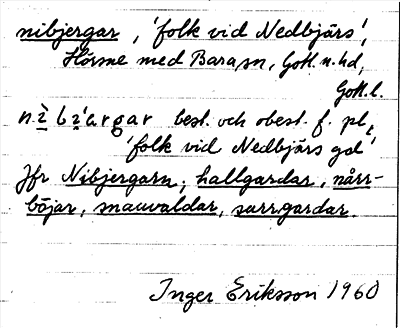 nibjergar, 'folk vid Nedbjärs',
Hörsne med Bara sn, Gotl. n. hd,
Gotl. l.
best. och obest. f. pl.,
'folk vid Nedbjärs gd'
Jfr Nibjergarn, hallgardar, nårr-
böjar, snauvaldar, surrgardar.
Inger Eriksson 1960